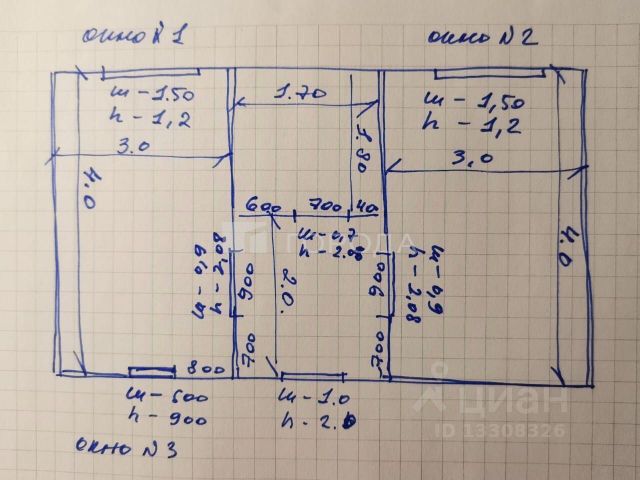 окно N 1
окно N 2
ш - 1.50
h - 1,2
3.0
4.0
1.70
1.80
ш - 1,50
h - 1,2
3,0
4.0
600
700
40
ш - 0,7
h - 2.08
2.0.
ГОРОДА
ш - 0,9
h - 2,08
900
700
900
700
ш - 0,9
h - 2.08
800
ш - 600
h - 900
окно N 3
ш - 1.0
h - 2.0
Циан
ID 13308326